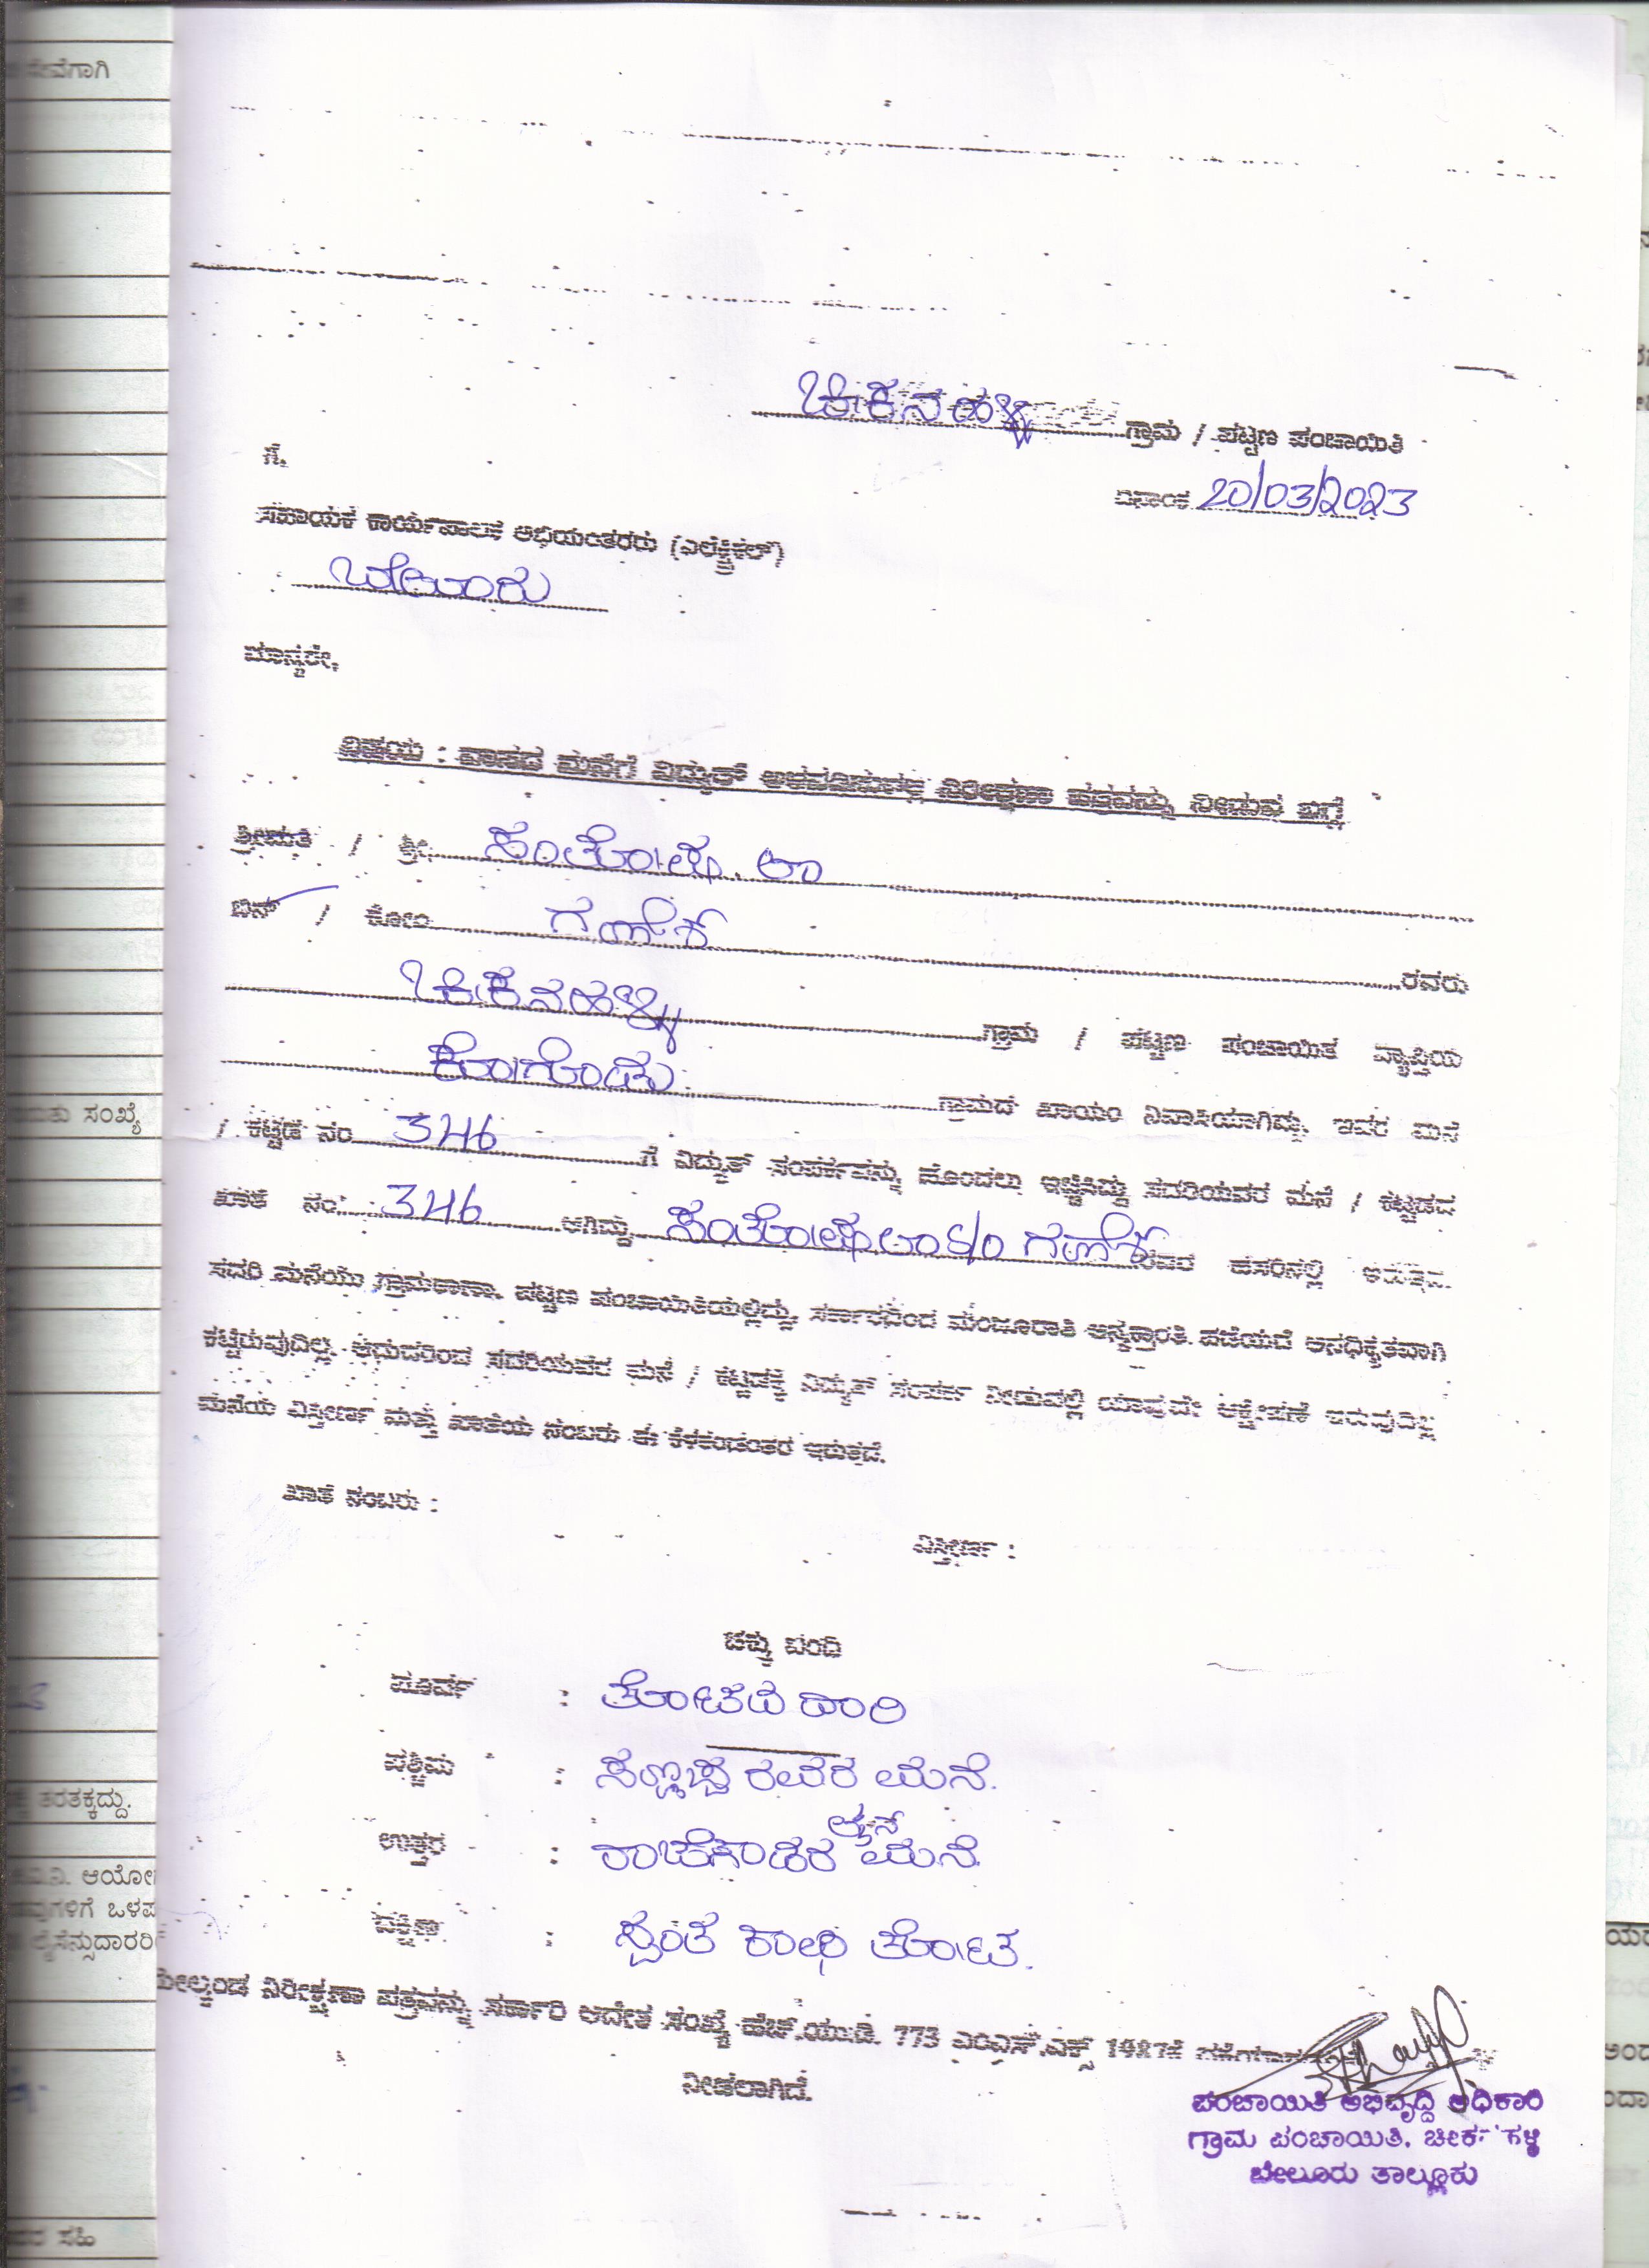 ಚೀಕನಹಳ್ಳಿ ಗ್ರಾಮ / ಪಟ್ಟಣ ಪಂಚಾಯಿತಿ
ಗೆ,
ದಿನಾಂಕ 20/03/2023
ಸಹಾಯಕ ಕಾರ್ಯಪಾಲಕ ಅಭಿಯಂತರರು (ಎಲೆಕ್ಟ್ರಿಕಲ್)
ಬೇಲೂರು
ಮಾನ್ಯರೇ,
ವಿಷಯ : ವಾಸದ ಮನೆಗೆ ವಿದ್ಯುತ್ ನಿರೀಕ್ಷಣಾ ಪತ್ರವನ್ನು ನೀಡುವ ಬಗ್ಗೆ
ಶ್ರೀಮತಿ / ಶ್ರೀ ಸಂತೋಷ.
ಬಿನ್ / ಕೋಂ ಗಣೇಶ್ ರವರು
ಚೀಕನಹಳ್ಳಿ ಗ್ರಾಮ / ಪಟ್ಟಣ ಪಂಚಾಯಿತ ವ್ಯಾಪ್ತಿಯ
ಕೋಗೋಡು ಗ್ರಾಮದ ಖಾಯಂ ನಿವಾಸಿಯಾಗಿದ್ದು, ಇವರ ಮನೆ
/ ಕಟ್ಟಡ ನಂ 346 ಗೆ ವಿದ್ಯುತ್ ಸಂಪರ್ಕವನ್ನು ಹೊಂದಲು ಇಚ್ಛಿಸಿದ್ದು ಸದರಿಯವರ ಮನೆ / ಕಟ್ಟಡದ
ಖಾತೆ ನಂ 346 ಆಗಿದ್ದು ಸಂತೋಷ S/o ಗಣೇಶ್ ರವರ ಹೆಸರಿನಲ್ಲಿ ಇರುತ್ತದೆ.
ಸದರಿ ಮನೆಯು ಗ್ರಾಮಠಾಣಾ, ಪಟ್ಟಣ ಪಂಚಾಯಿತಿಯಲ್ಲಿದ್ದು, ಸರ್ಕಾರದಿಂದ ಮಂಜೂರಾತಿ ಅನ್ಯಕ್ರಾಂತಿ ಪಡೆಯದೆ ಅನಧಿಕೃತವಾಗಿ
ಕಟ್ಟಿರುವುದಿಲ್ಲ. ಆದುದರಿಂದ ಸದರಿಯವರ ಮನೆ / ಕಟ್ಟಡಕ್ಕೆ ವಿದ್ಯುತ್ ಸಂಪರ್ಕ ನೀಡುವಲ್ಲಿ ಯಾವುದೇ ಆಕ್ಷೇಪಣೆ ಇರುವುದಿಲ್ಲ
ಮನೆಯ ವಿಸ್ತೀರ್ಣ ಮತ್ತು ಖಾತೆಯ ನಂಬರು ಈ ಕೆಳಕಂಡಂತರ ಇರುತ್ತದೆ.
ಖಾತೆ ನಂಬರು :
ವಿಸ್ತೀರ್ಣ :
ಚಕ್ಕು ಬಂದಿ
ಪೂರ್ವ : ತೋಟದ ದಾರಿ
ಪಶ್ಚಿಮ : ಸಣ್ಣಪ್ಪ ರವರ ಮನೆ.
ಉತ್ತರ : ರಾಜೇಗೌಡರ ಮನೆ
ದಕ್ಷಿಣ : ಸ್ವಂತ ಕಾಫಿ ತೋಟ.
ಮೇಲ್ಕಂಡ ನಿರೀಕ್ಷಣಾ ಪತ್ರವನ್ನು ಸರ್ಕಾರಿ ಆದೇಶ ಸಂಖ್ಯೆ ಹೆಚ್.ಯು.ಡಿ. 773 ಎಂಎನ್.ಎಕ್ಸ್
ನೀಡಲಾಗಿದೆ.
ಪಂಚಾಯಿತಿ ಅಭಿವೃದ್ಧಿ ಅಧಿಕಾರಿ
ಗ್ರಾಮ ಪಂಚಾಯಿತಿ, ಚೀಕನಹಳ್ಳಿ
ಬೇಲೂರು ತಾಲ್ಲೂಕು
ಸೇವೆಗಾಗಿ
ಸಂಖ್ಯೆ
ತರತಕ್ಕದ್ದು.